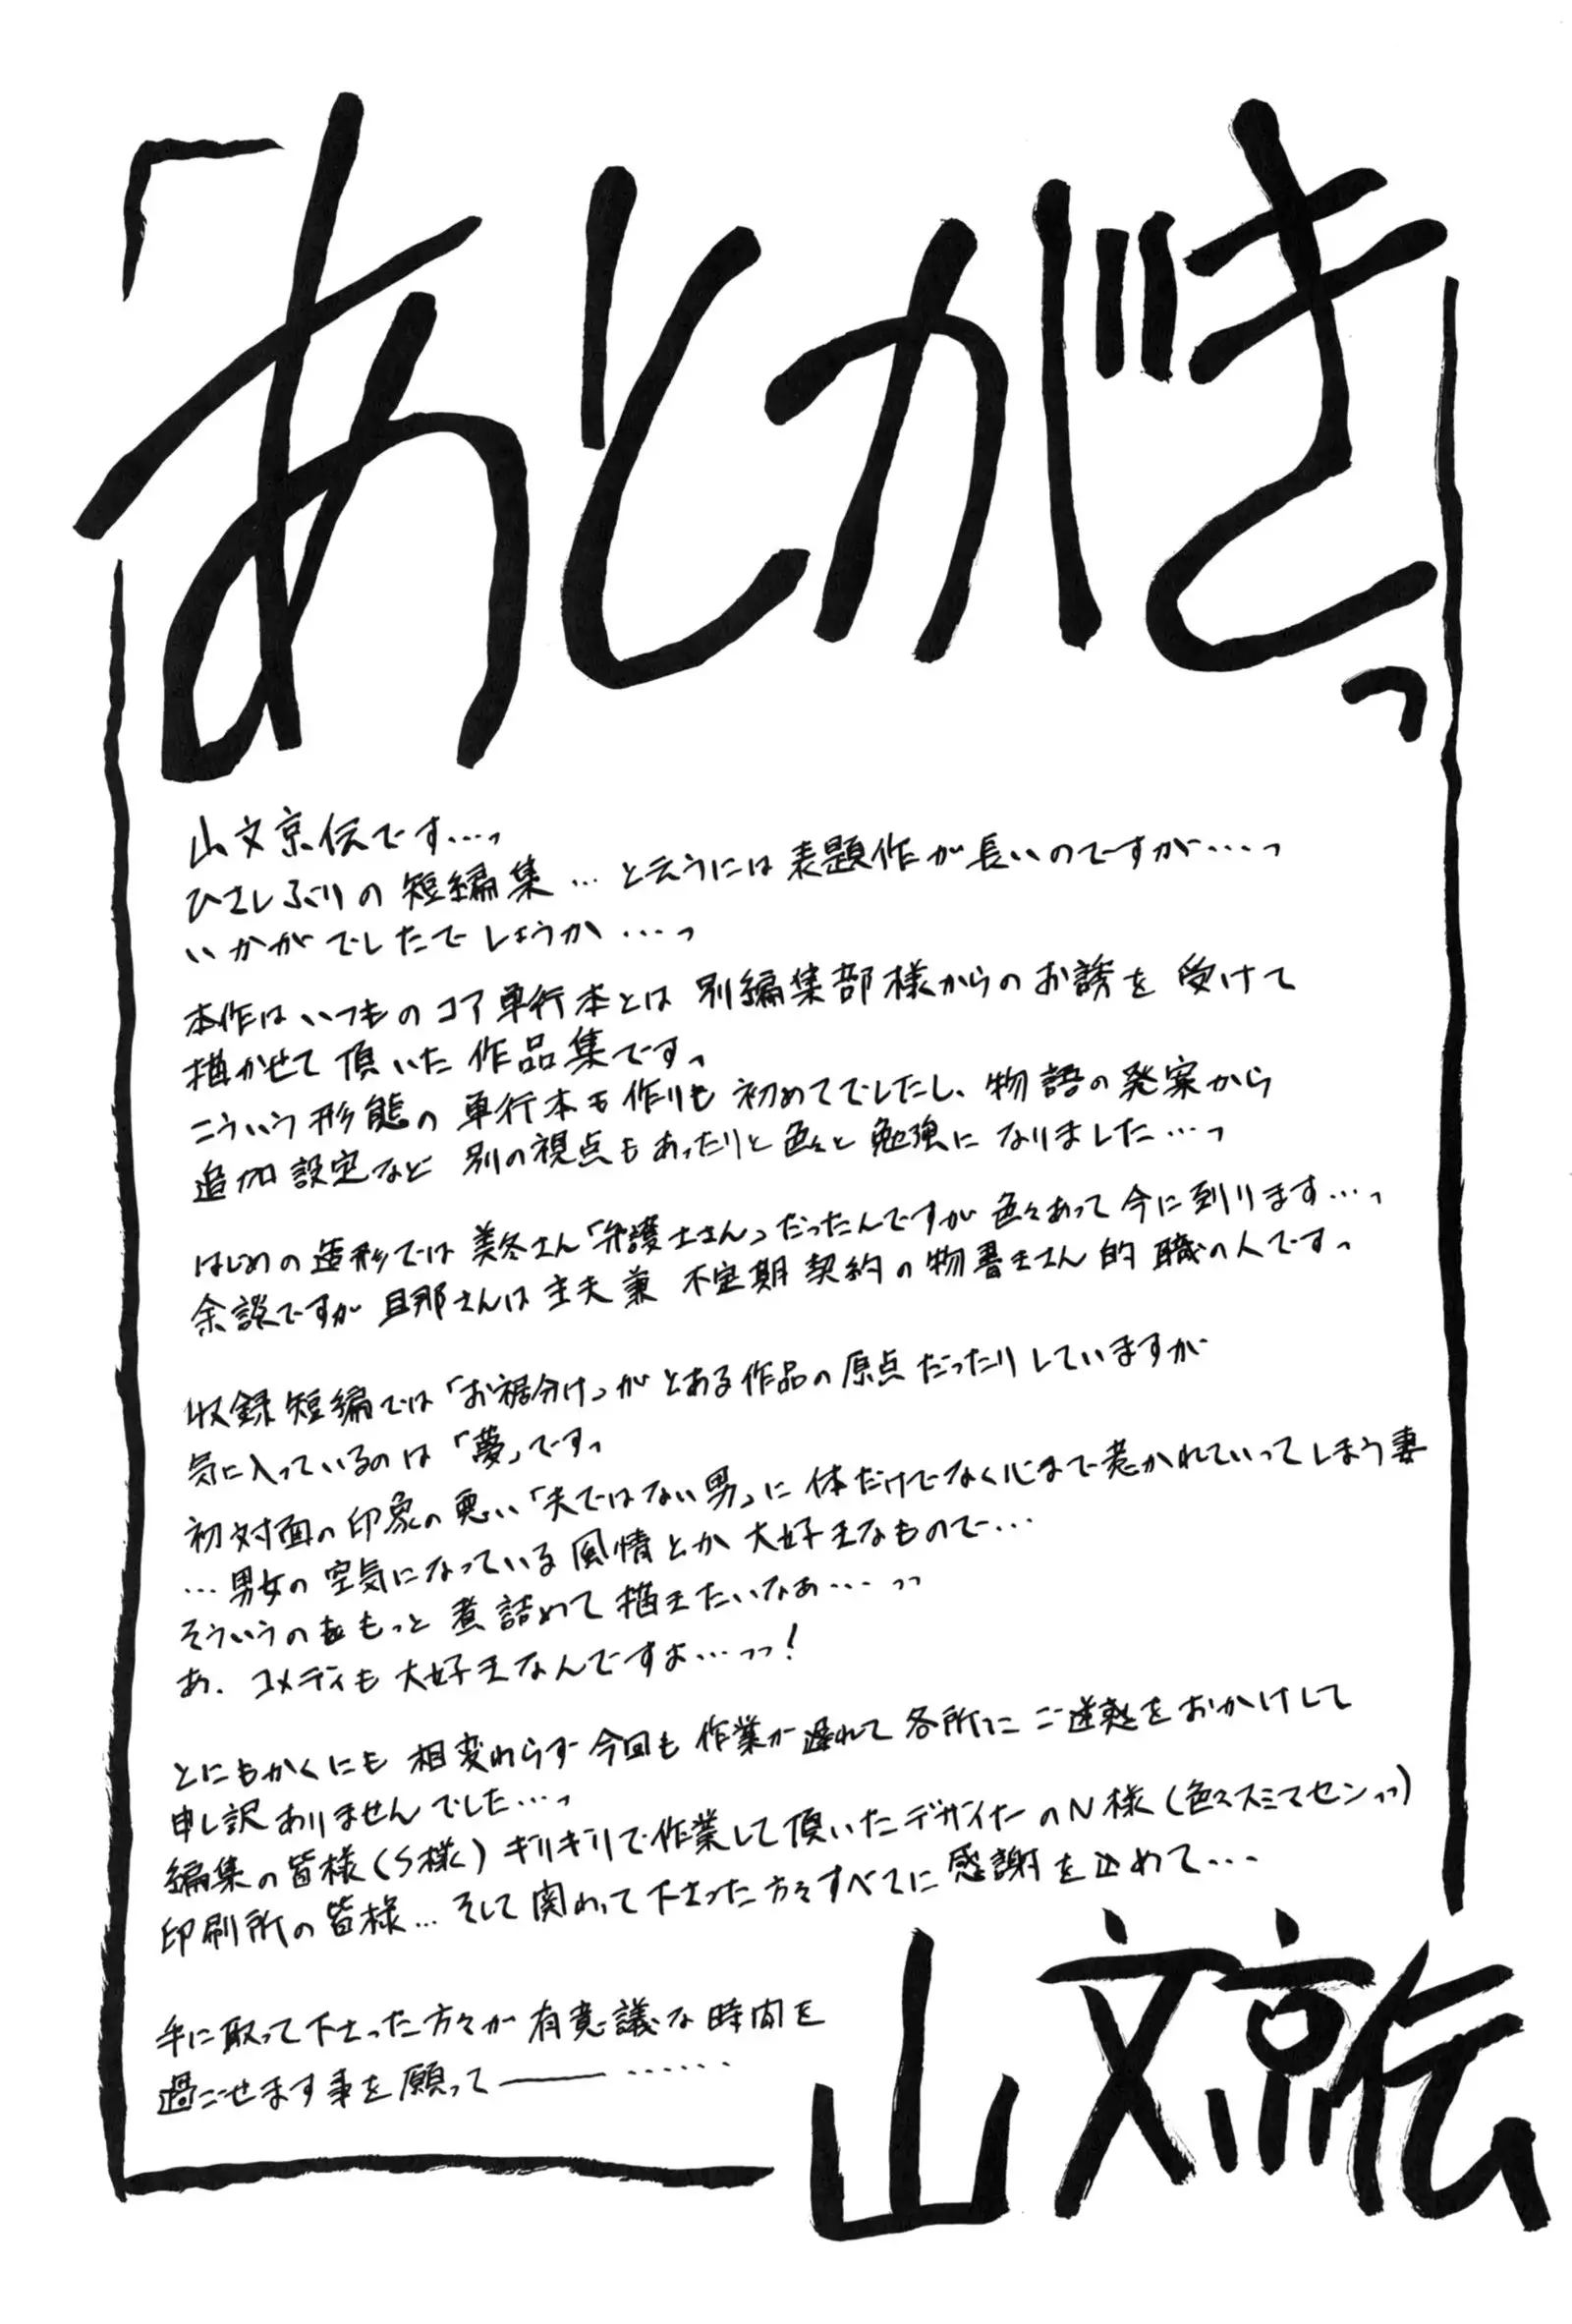 「あとがきっ
山文京伝です…っ
ひさしぶりの短編集…と云うには表題作が長いのですが…っ
いかがでしたでしょうか…っ
本作はいつものコアの単行本とは別編集部様からのお誘を受けて
描かせて頂いた作品集ですっ
こういう形態の単行本も作りも初めてでしたし、物語の発案から
追加設定など別の視点もあったりと色々と勉強になりました…っ
はじめの造形では美冬さん「弁護士さん」だったんですが色々あって今に到ります…っ
余談ですが旦那さんは主夫兼不定期契約の物書きさん的職の人ですっ
収録短編では「お裾分け」がとある作品の原点だったりしていますが
気に入っているのは「夢」ですっ
初対面の印象の悪い「夫ではない男」に体だけでなく心まで惹かれていってしまう妻
…男女の空気になっている風情とか大好きなもので…
そういうのをもっと煮詰めて描きたいなぁ…っっ
あ、コメディも大好きなんですよ…っっ!
とにもかくにも相変わらず今回も作業が遅れて各所にご迷惑をおかけして
申し訳ありませんでした…っ
編集の皆様(S様)ギリギリで作業して頂いたデザイナーのN様(色々スミマセンっっ)
印刷所の皆様…そして関わって下さった方々すべてに感謝を止めて…
手に取って下さった方々が有意議な時間を
過ごせます事を願って――……
山文京伝